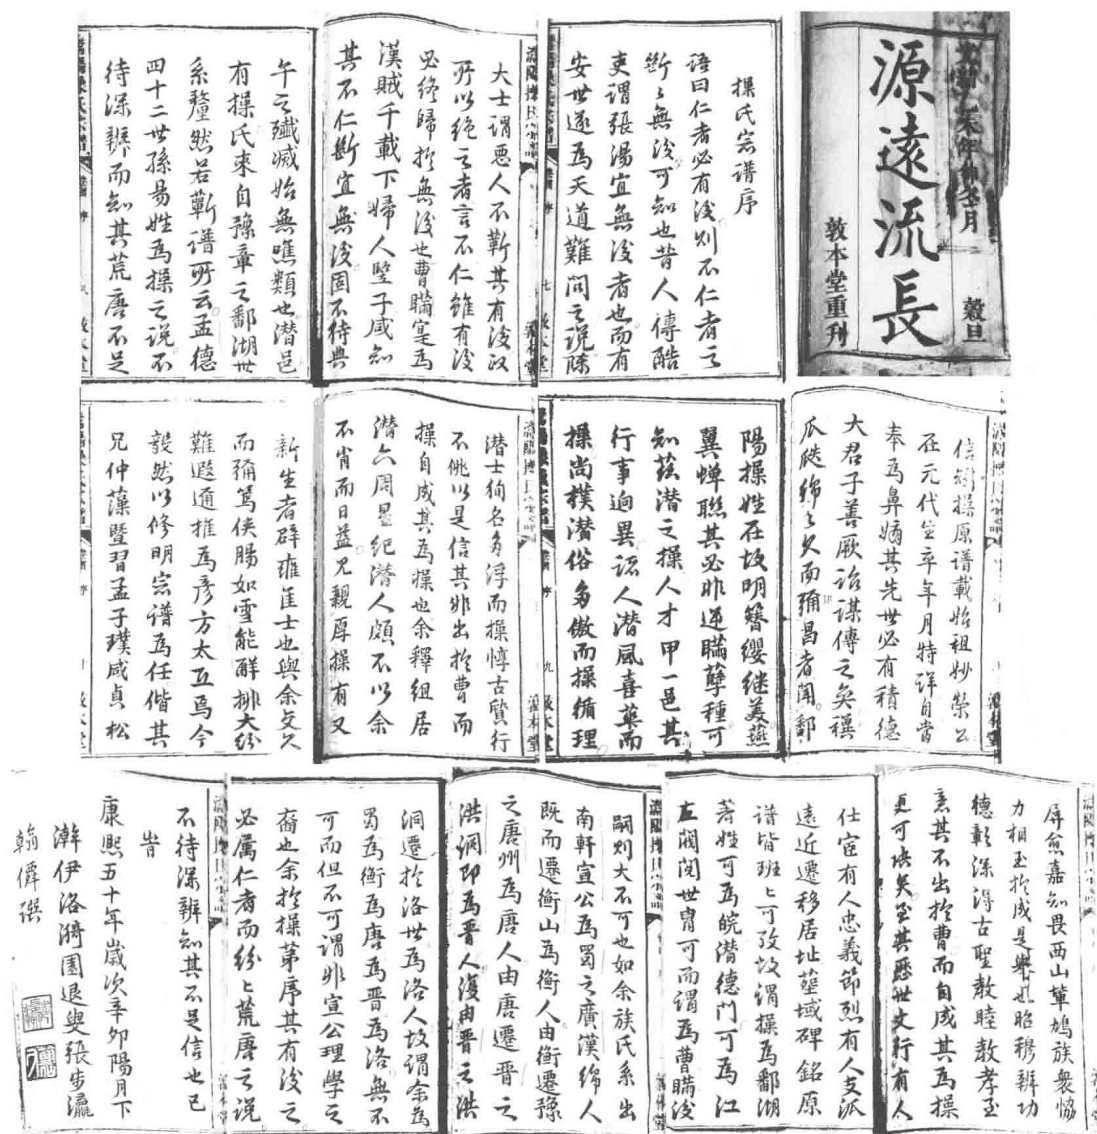 未年仲冬月 穀旦
源遠流長
敦本堂重刊
操氏宗谱序
語曰仁者必有後则不仁者之
断々無後可知也昔人傳酷
吏谓張湯宜無後者也而有
安世遂為天道難問之说陈
大士谓恶人不斬其有後政
所以绝之者言不仁雖有後
必终歸於無後也曹瞞寔為
漢賊千載下婦人竪子咸知
其不仁断宜無後固不待典
午之殱滅始無噍類也潜邑
有操氏來自豫章之鄱湖世
系釐然若蕲谱所云孟德
四十二世孫易姓為操之说不
待深辨而知其荒唐不足
信操原谱載始祖妙榮公
在元代生卒年月特详自當
奉為鼻嫡其先世必有積德
大君子善厥诒謀傳之奕禩
瓜瓞绵々久而彌昌者聞鄱
陽操姓在故明簪缨继美燕
翼蝉聯其必非逆瞞孽種可
知兹潜之操人才甲一邑其
行事迥異诸人潜風喜華而
操尚樸潜俗多傲而操循理
潜士狥名多浮而操惇古質行
不佻以是信其非出於曹而
操自成其為操也余释组居
潜六周星纪潜人頗不以余
不肖而日益兄親厚操有又
新生者辟雍隹士也與余交久
而彌笃侠腸如雪能解排大纷
難遐迩推為彦方太丘焉今
毅然以修明宗谱為任偕其
兄仲藻暨習孟子璞咸貞松
屏愈嘉知畏西山軰鳩族衆恊
力相至於成是舉也昭穆辨功
德彰深得古聖敎睦敎孝至
意其不出於曹而自成其為操
更可决矣至其歷世文行有人
仕宦有人忠義節烈有人支派
遠近遷移居址塋域碑銘原
谱皆班々可攷故谓操為鄱湖
著姓可為皖潜德門可為江
左阀阅世胄可而谓為曹瞞後
嗣则大不可也如余族氏系出
南軒宣公為蜀之廣漢绵人
既而遷衡山為衡人由衡遷豫
之唐州為唐人由唐遷晋之
洪洞即為晋人復由晋之洪
洞遷於洛世為洛人故谓余為
蜀為衡為唐為晋為洛無不
可而但不可谓非宣公理學之
裔也余於操第序其有後之
必属仁者而纷々荒唐之说
不待深辨知其不足信也已
旹
康熙五十年歲次辛卯陽月下
澣伊洛漪園退叟張步瀛
翰僊撰